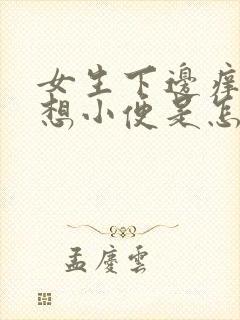 女生下邊痒
想小便是怎
孟慶雲